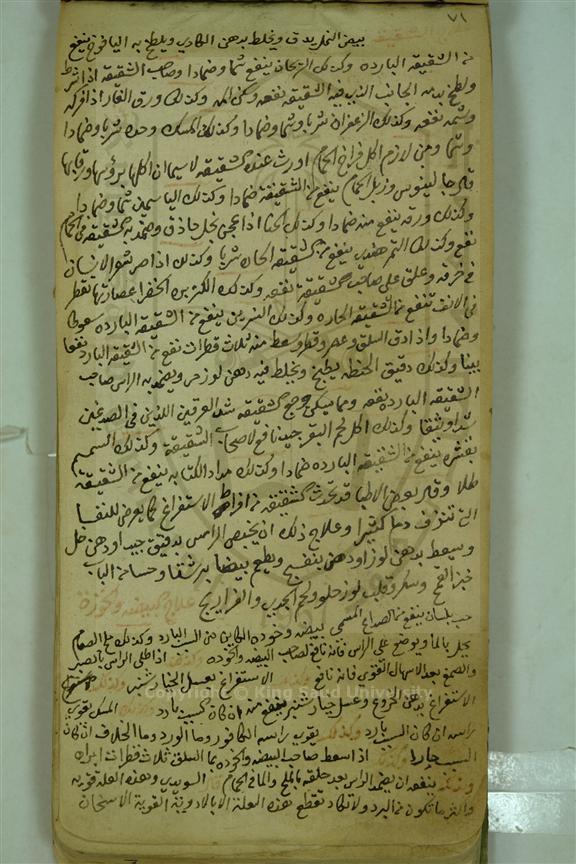 ٧١
بيض النمل يدق ويخلط بدهن الكادي ويلطخ به اليافوخ ينفع
من الشقيقه البارده وكذلك الريحان ينفع شما وضمادا وصاحب الشقيقه اذا شرط
ولطخ بدمه الجانب الذي فيه الشقيقه نفعه وسكن المه وكذلك ورق الغار اذا فركه
وشمه نفعه وكذلك الزعفران شربا وشما وضمادا وكذلك المسك وحده شربا وضمادا
وشما ومن لازم اكل فراخ الحمام اورث عنده شقيقه لا سيما ان اكلها برؤسها ورقابها
قال جالينوس وزبل الحمام ينفع من الشقيقة ضمادا وكذلك الياسمين شما وضمادا
وكذلك ورقه ينفع منه ضمادا وكذلك الحنا اذا عجن بخل حاذق وضمد به الشقيقه في الحمام
نفع وكذلك التمر هندي ينفع من الشقيقه الحاره شربا وكذلك اذا صر شعر الانسان
في خرقه وعلق على صاحب الشقيقة نفعه وكذلك الكزبره الخضرا عصارتها تقطر
في الانف تنفع من الشقيقه الحاره وكذلك النسرين ينفع من الشقيقه البارده سعوطا
وضمادا واذا دق السلق وعصر وقطر وسعط منه ثلاث قطرات نفع من الشقيقه البارده نفعا
بينا وكذلك دقيق الحنطه يطبخ ويخلط فيه دهن لوز مر ويضمد به الراس صاحب
الشقيقه البارده نفعه ومما يسكن وجع الشقيقه شد العرقين اللذين في الصدغين
شدا وثيقا وكذلك اكل لحم البقر جيد نافع لاصحاب الشقيقة وكذلك السمسم
بقشره ينفع من الشقيقه البارده ضمادا وكذلك مداد الكتابه ينفع من الشقيقة
طلا وقال بعض الاطبا قد تحدث الشقيقه من افراط الاستفراغ كما يعرض للنفسا
التي تنزف دما كثيرا وعلاج ذلك ان يخبص الراس بدقيق جيد او دهن حل
ويسعط بدهن لوز او دهن بنفسج ويطعم بيضا برشقا وحسا من لباب
خبز القمح وسكر وقلب لوز حلو ولحم الجدي والفراريج
علاج البيضه والخوذة
حب بلسان ينفع من الصداع المسمى بيضه وخوده الكاين من السبب البارد وكذلك
يحل بالما ويوضع على الراس فانه نافع لصاحب البيضه والخوده وكذلك اذا طلي الراس بالصبر
والصمغ بعد الاسهال القوي فانه نافع وكذلك الاستفراغ بعسل الخيار شنبر وكذلك
الاستفراغ بدهن الخروع وعسل خيار شنبر ينفع من ان كان السبب بارد وكذلك المسك يقوي
راسه ان كان السبب بارد وكذلك يقوي راسه الكافور وما الورد وما الخلاف ان كان
السبب حارا وكذلك اذا سعط صاحب البيضه والخوده بما السلق ثلاث قطرات ابراه
وكذلك ينفعه ان يضمد الراس بعد حلقه بالملح والما في الحمام السويدي وهذه العله قويه
واكثر ما تكون من البرد ولا تكاد تقطع هذه العلة الا بالادوية القوية الاسخان
Copyright © King Saud University